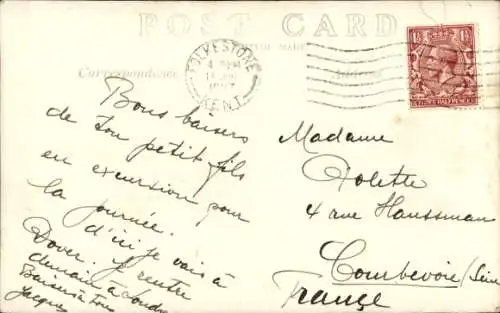 POST CARD
Correspondence
Address
FOLKESTONE
KENT
Bons baisers
de ton petit fils
en excursion pour
la journée.
d'ici je vais à
Dover. je rentre
demain à
Baisers à tous
Jacques
Madame
Rolette
4 rue Haussman
Courbevoie / Seine
France